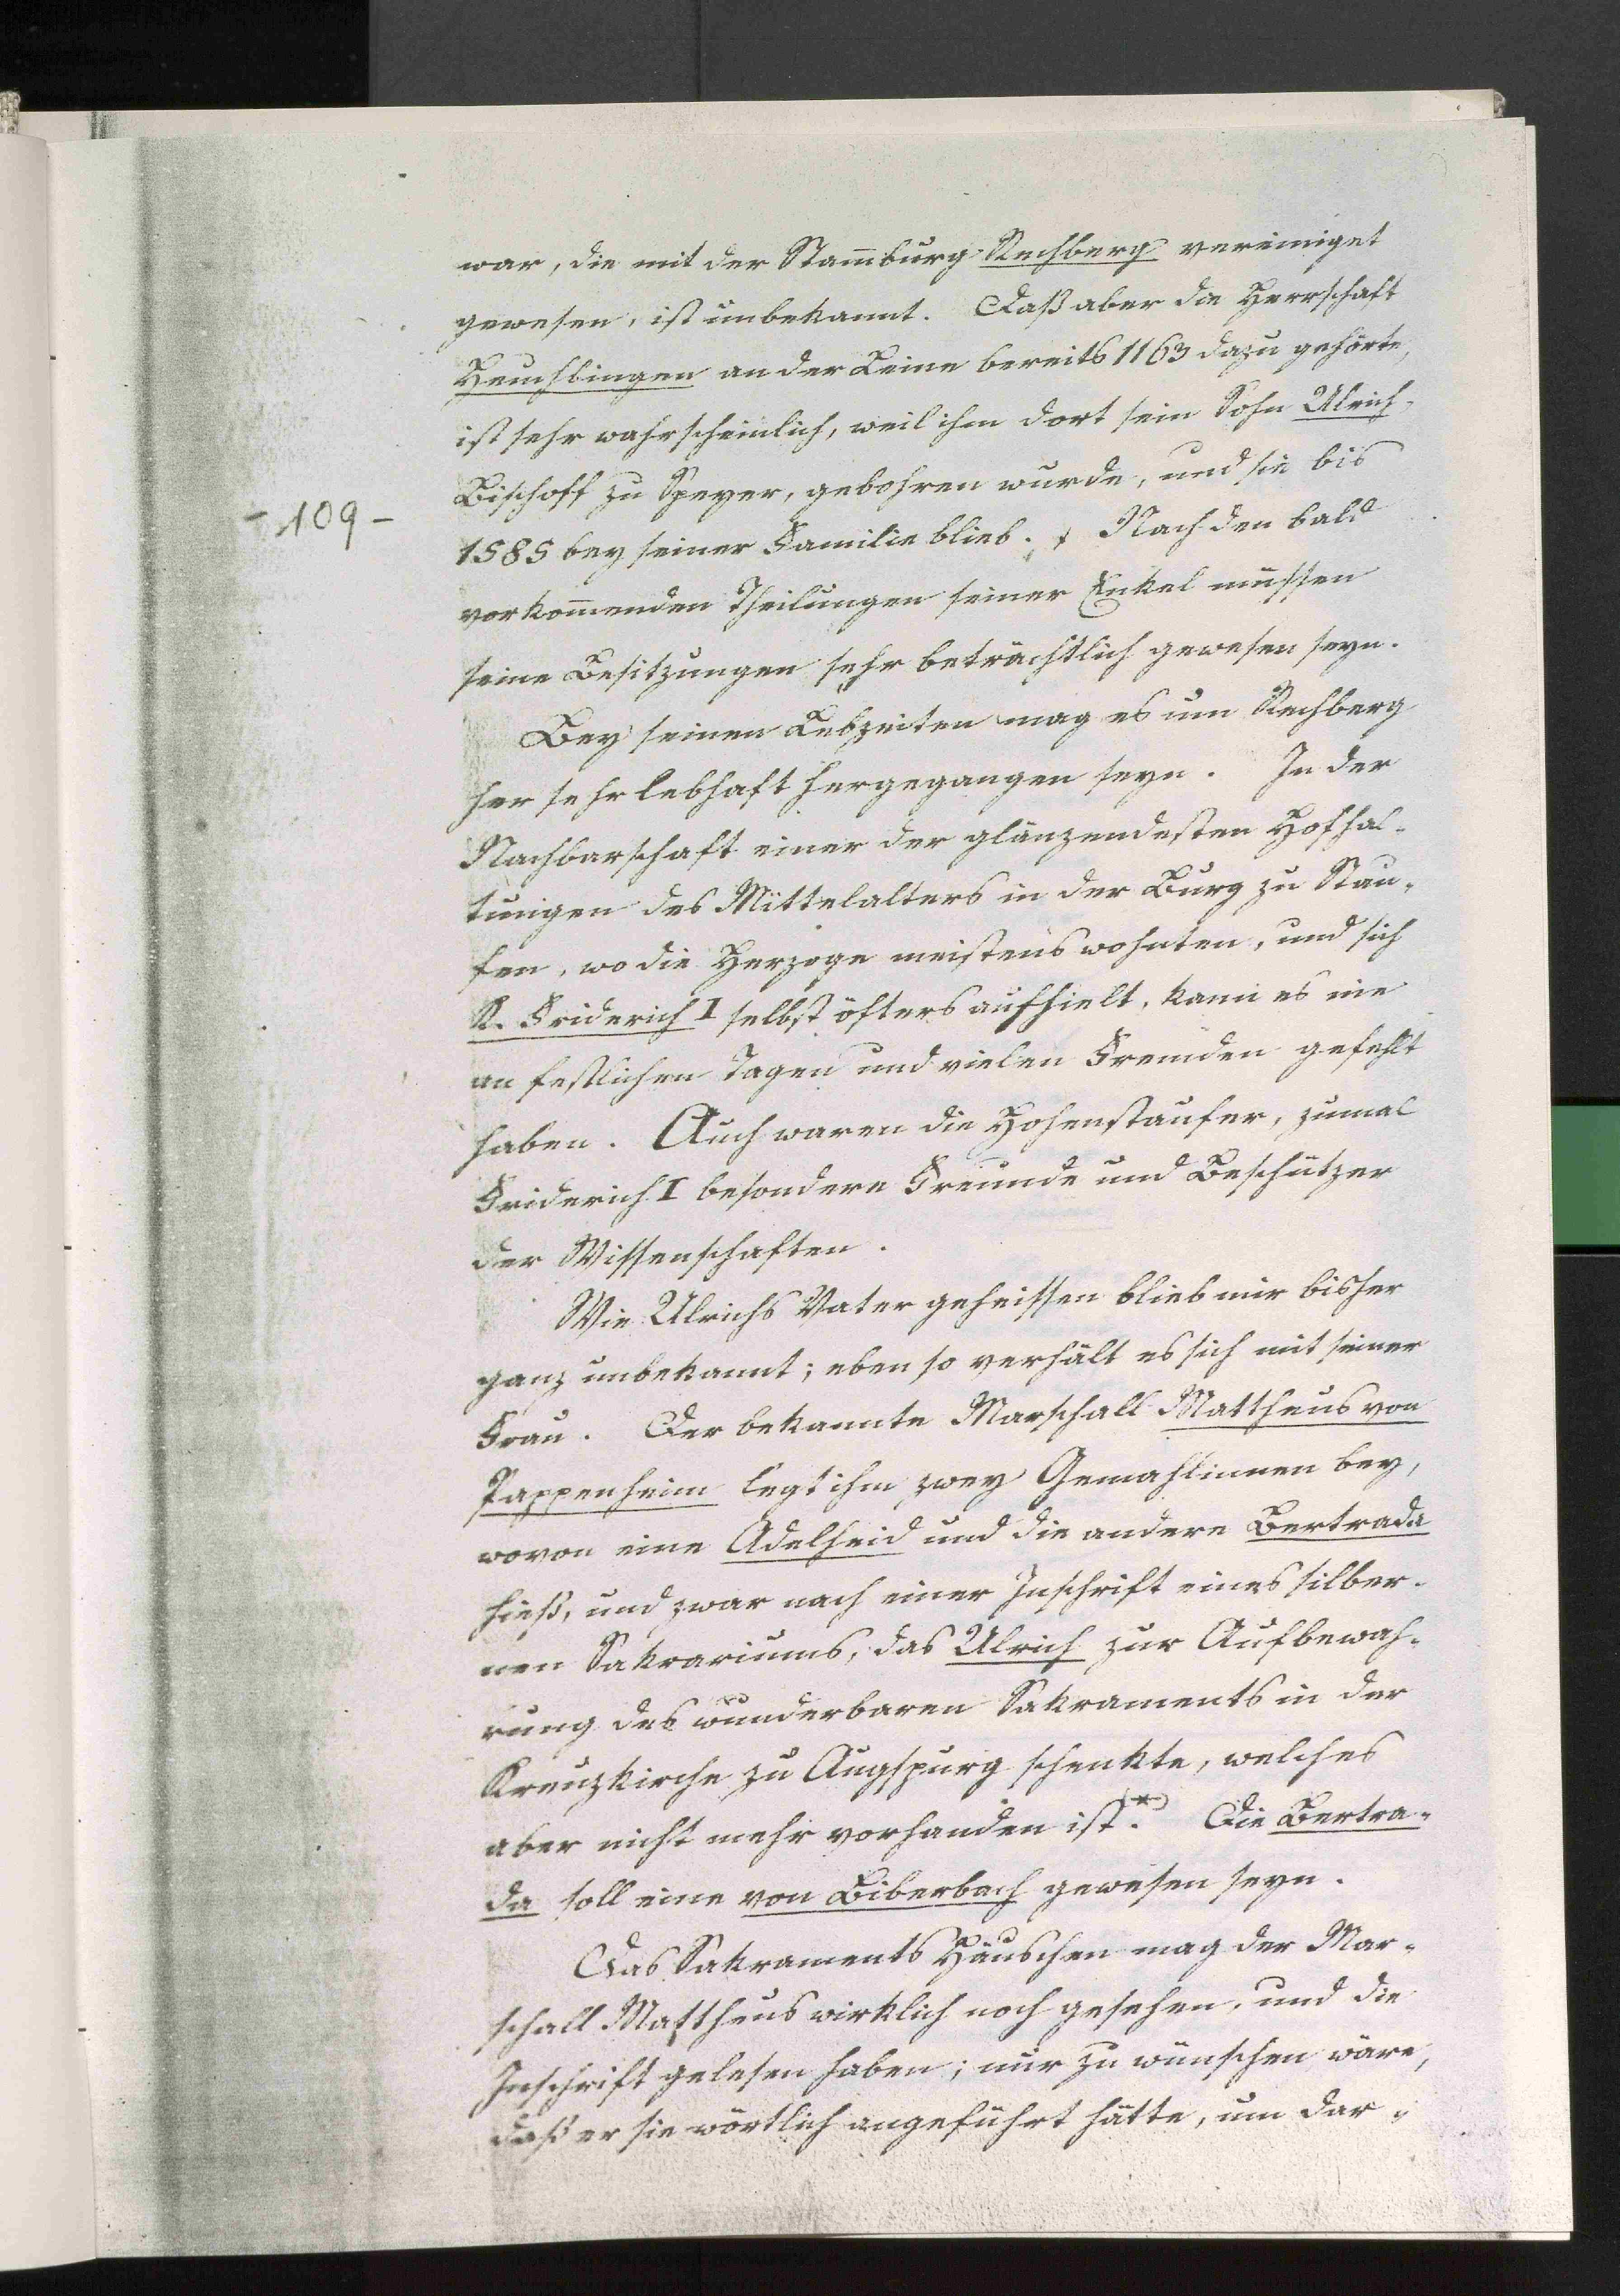 war, die mit der Stam̄burg Rechberg vereiniget
gewesen, ist unbekannt. Daß aber die Herrschaft
Heuchlingen an der Leine bereits 1163 dazu gehörte,
ist sehr wahrscheinlich, weil ihm dort sein Sohn Ulrich,
Bischoff zu Speyer, gebohren wurde, und sie bis
- 109 -
1585 bey seiner Familie blieb. Nach den bald
vorkom̄enden Theilungen seiner Enkel müssen
seine Besitzungen sehr beträchtlich gewesen seyn.
Bey seinen Lebzeiten mag es um Rechberg
her sehr lebhaft hergegangen seyn. In der
Nachbarschaft einer der glänzendesten Hofhal-
tungen des Mittelalters in der Burg zu Stau-
fen, wo die Herzoge meistens wohnten, und sich
K. Friderich I selbst öfters aufhielt, kann es nie
an festlichen Tagen und vielen Fremden gefehlt
haben. Auch waren die Hohenstaufer, zumal
Friderich I besondere Freunde und Beschützer
der Wissenschaften.
Wie Ulrichs Vater geheissen blieb mir bisher
ganz unbekannt; eben so verhält es sich mit seiner
Frau. Der bekannte Marschall Mattheus von
Pappenheim legt ihm zwey Gemahlinnen bey,
wovon eine Adelheid und die andere Bertrada
hieß, und zwar nach einer Inschrift eines silber-
nen Sakrariums, das Ulrich zur Aufbewah-
rung des wunderbaren Sakraments in der
Kreuzkirche zu Augspurg schenkte, welches
aber nicht mehr vorhanden ist.(*) Die Bertra-
da soll eine von Biberbach gewesen seyn.
Das Sakraments Häuschen mag der Mar-
schall Mattheus wirklich noch gesehen, und die
Inschrift gelesen haben; nur zu wünschen wäre,
daß er sie wörtlich angeführt hätte, um dar-